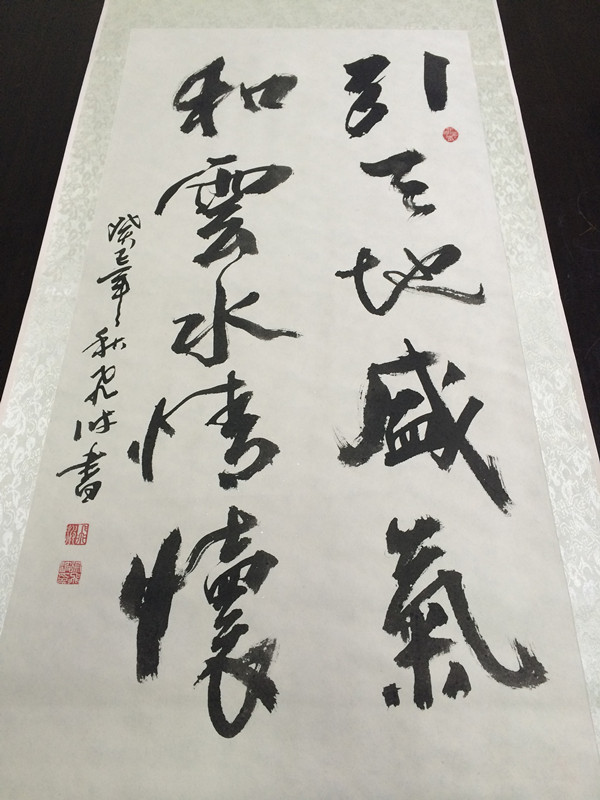 引天地盛氣
和雲水情懷
癸巳年秋
書